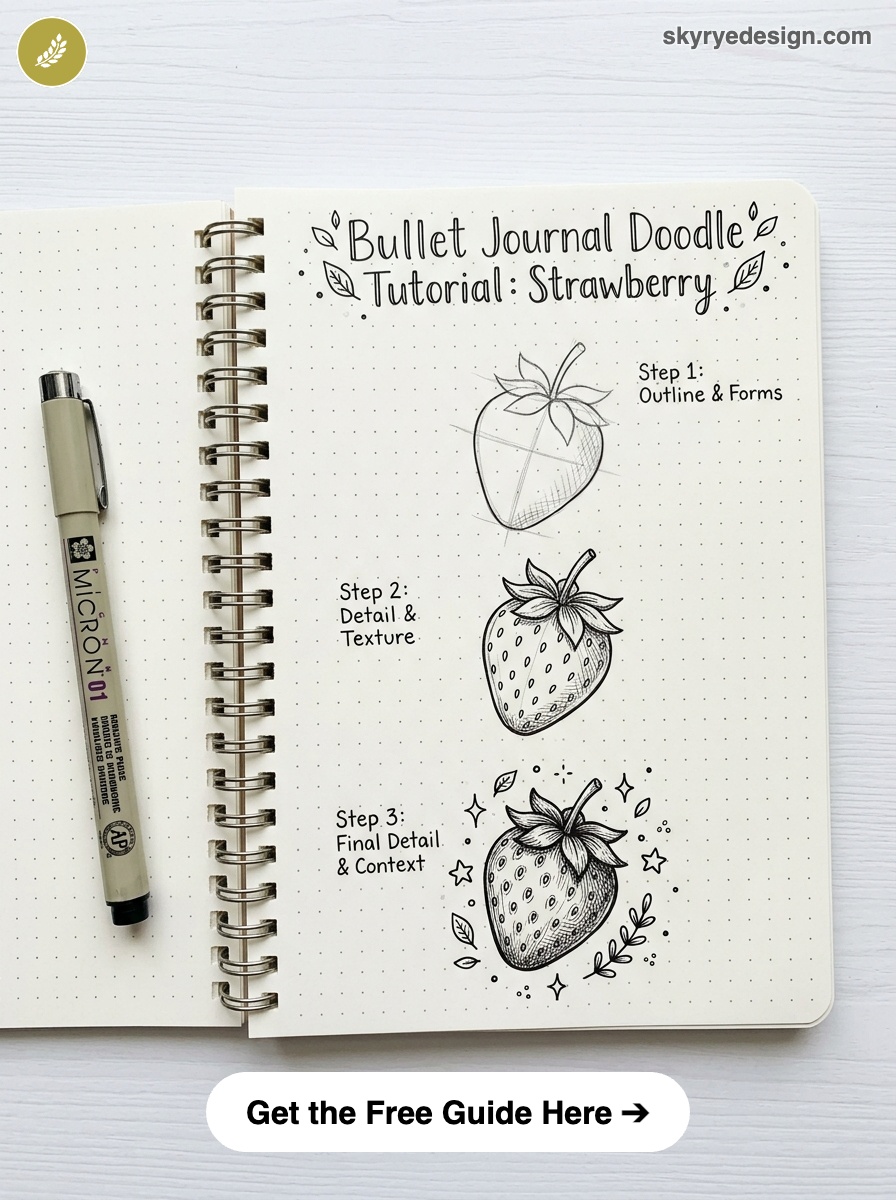 skyryedesign.com
Bullet Journal Doodle
Tutorial: Strawberry
Step 1:
Outline & Forms
Step 2:
Detail &
Texture
Step 3:
Final Detail
& Context
PIGMA
MICRON 01
AP
Get the Free Guide Here ➔